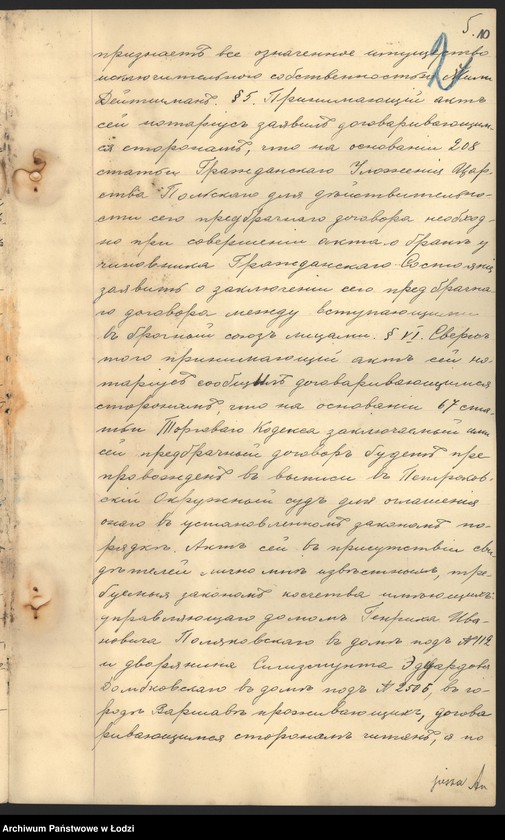 5. 10
2
признаетъ все означенное имущество
исключительною собственностью
Дейтшманъ. § 5. Принимающій актъ
сей нотаріусъ заявилъ договаривающим-
ся сторонамъ, что на основаніи 208
статьи Гражданскаго Уложенія Цар-
ства Польскаго для дѣйствительно-
сти сего предбрачнаго договора необход-
но при совершеніи акта о бракѣ у
чиновника Гражданскаго Состоянія
заявить о заключеніи сего предбрачна-
го договора между вступающими
въ брачный союзъ лицами. § VI. Сверхъ
того принимающій актъ сей но-
таріусъ сообщилъ договаривающимся
сторонамъ, что на основаніи 67 ста-
тьи Торговаго Кодекса заключаемый ими
сей предбрачный договоръ будетъ пре-
провожденъ въ выписи въ Петроков-
скій Окружной судъ для оглашенія
онаго въ установленномъ закономъ по-
рядкѣ. Актъ сей въ присутствіи сви-
дѣтелей лично мнѣ извѣстныхъ, тре-
буемыя закономъ качества имѣющихъ:
управляющаго домомъ Генриха Ива-
новича Поляковскаго въ домѣ подъ № 1112
и дворянина Сигизмунта Эдуардова
Домбковскаго въ домѣ подъ № 2505, въ го-
родѣ Варшавѣ проживающихъ, догова
ривающимся сторонамъ читанъ, а по
Archiwum Państwowe w Łodzi